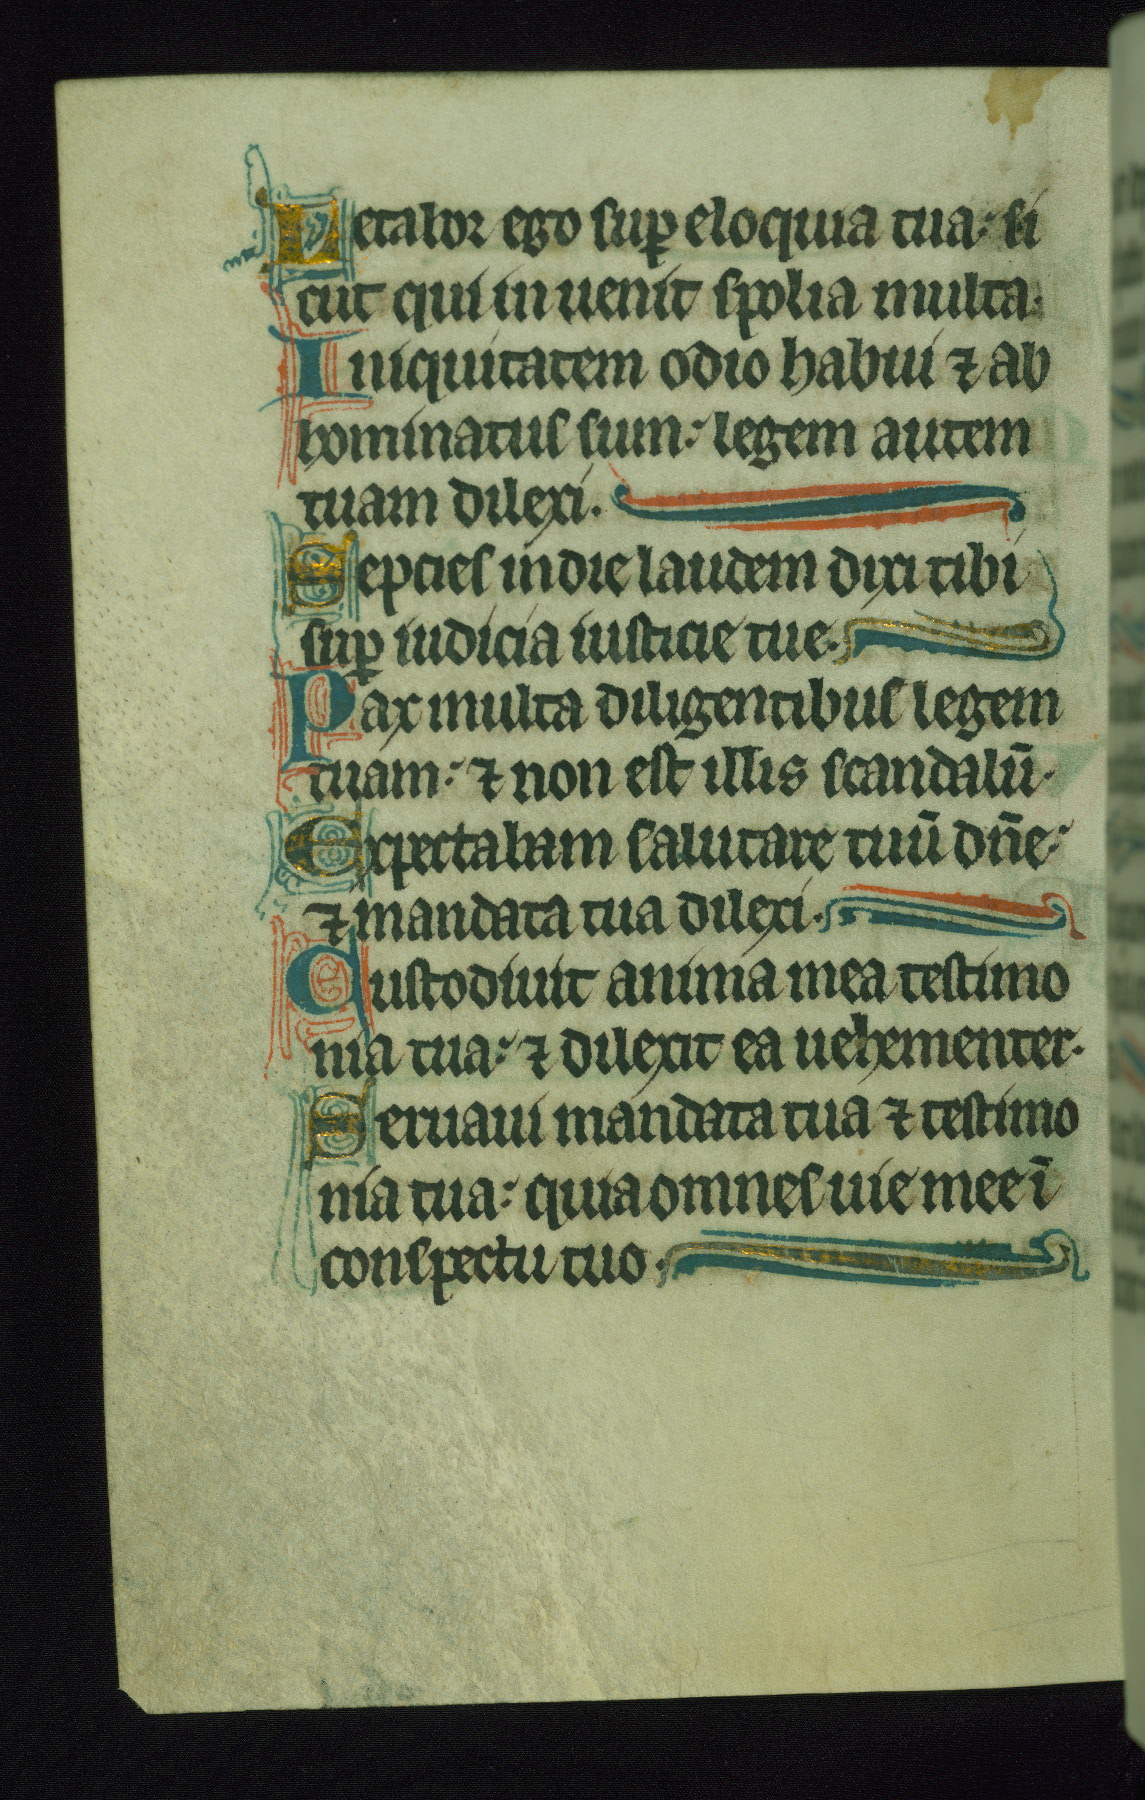 Letabor ego sup̲ eloquia tua: si
cut qui inuenit spolia multa.
Iniquitatem odio habui ⁊ ab
hominatus sum: legem autem
tuam dilexi.
Sepcies in die laudem dixi tibi
sup̲ iudicia iusticie tue.
Pax multa diligentibus legem
tuam: ⁊ non est illis scandalū.
Expectabam salutare tuū dn̄e:
⁊ mandata tua dilexi.
Custodiuit anima mea testimo
nia tua: ⁊ dilexit ea uehementer.
Seruaui mandata tua ⁊ testimo
nia tua: quia omnes uie mee ī
conspectu tuo.